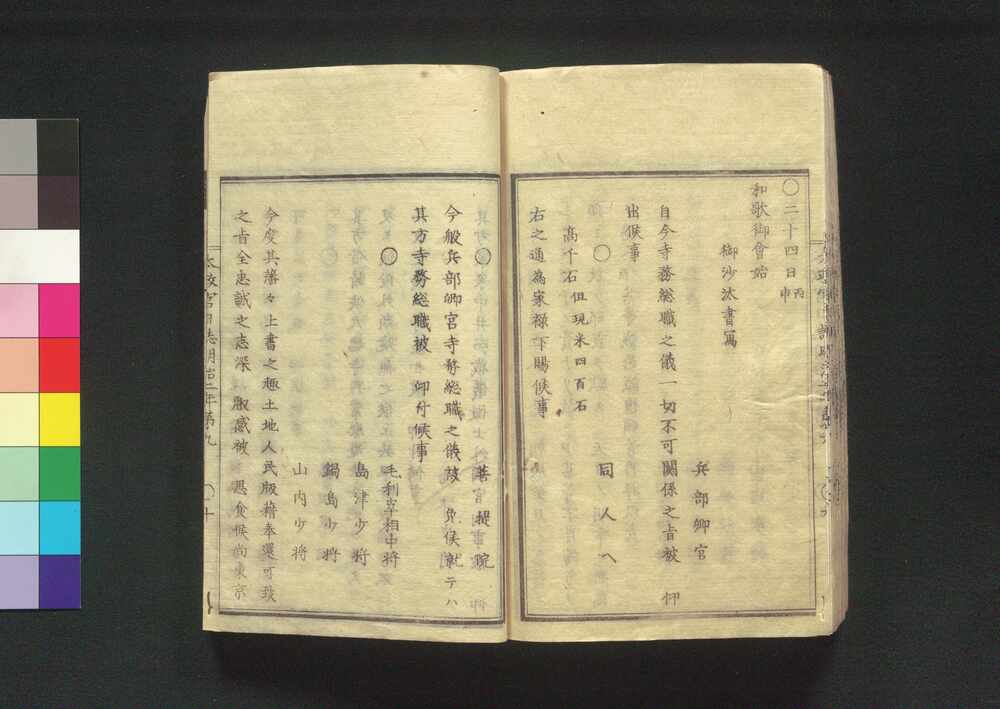 〇二十四日丙申
和歌御會始
御沙汰書寫
兵部卿宮
自今寺務総職之儀一切不可關係之旨被 仰
出候事
〇 同人へ
高千石但現米四百石
右之通為家禄下賜候事
〇 菩提院
今般兵部卿宮寺務総職之儀被 免候就テハ
其方寺務総職被 仰付候事
〇 毛利宰相中将
島津少将
鍋島少将
山内少将
今度其藩々上書之趣土地人民版籍奉還可致
之旨全忠誠之志深 叡感被 思食候尚東京
太政官日誌明治二年第九 〇十